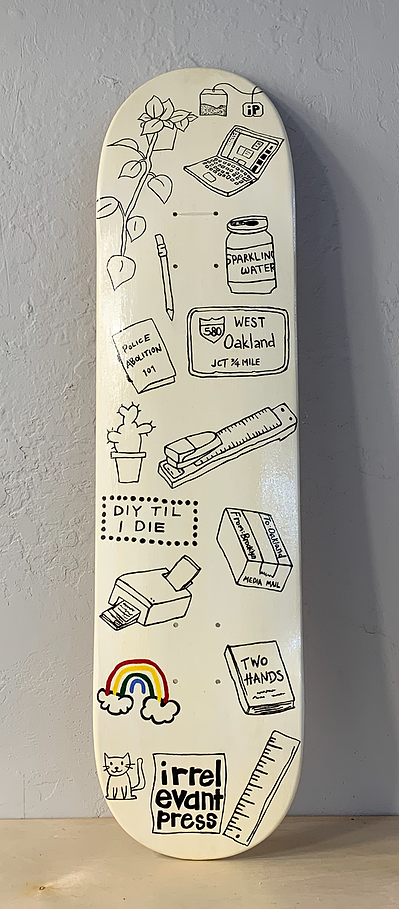 iP
SPARKLING
WATER
580
WEST
Oakland
JCT ¾ MILE
POLICE
ABOLITION
101
DIY TIL
I DIE
To: Oakland
From: Brooklyn
MEDIA MAIL
TWO
HANDS
irrel
evant
press